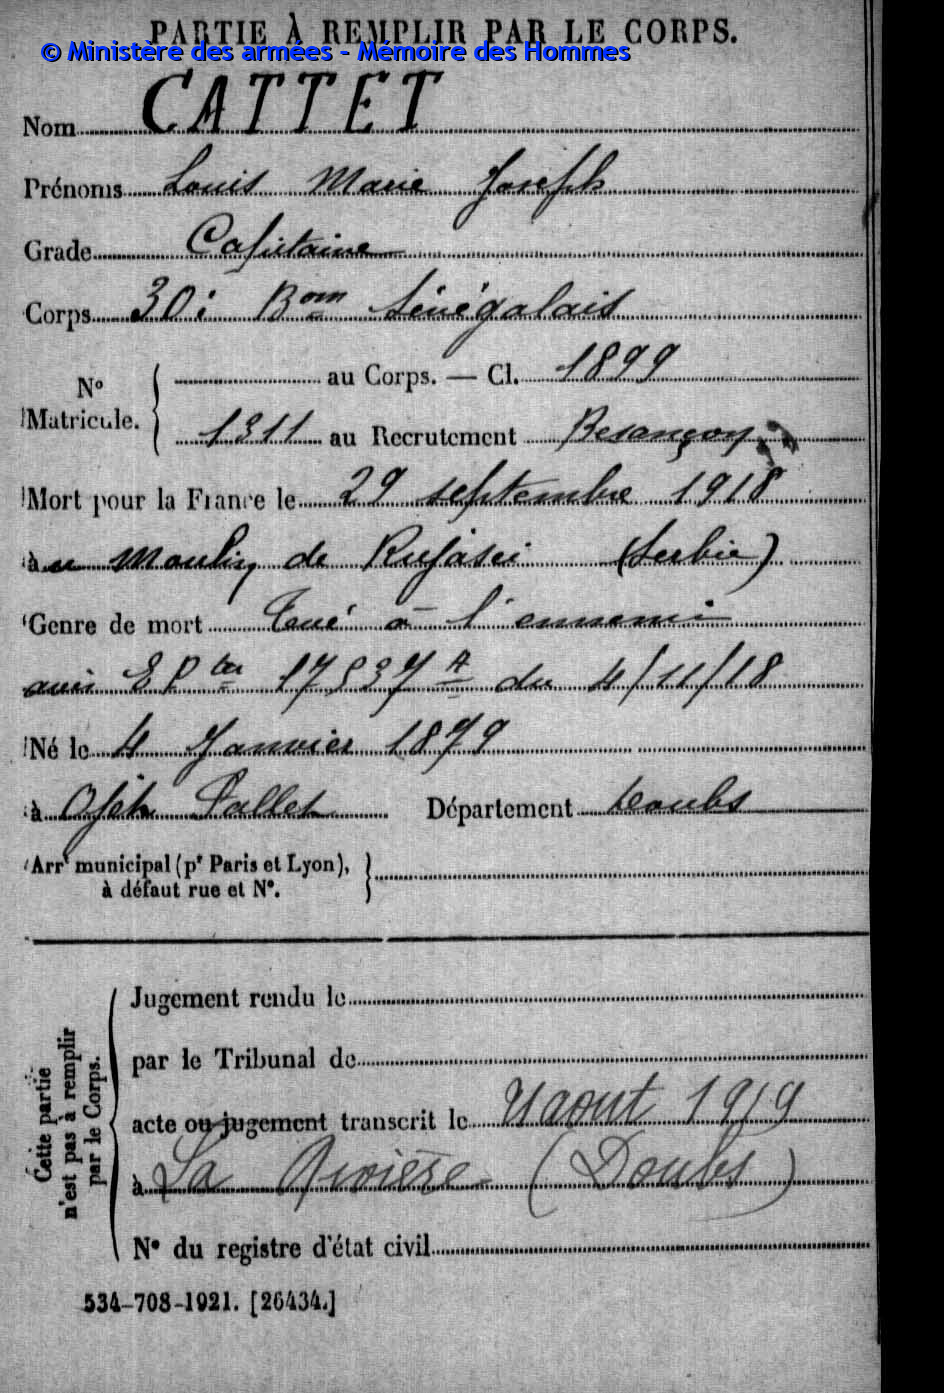 PARTIE À REMPLIR PAR LE CORPS.
© Ministère des armées - Mémoire des Hommes
Nom CATTET
Prénoms Louis Marie Joseph
Grade Capitaine
Corps 30e Bon Sénégalais
N° Matricule. { au Corps. — Cl. 1899
1311 au Recrutement Besançon
Mort pour la France le 29 septembre 1918
à au Moulin de (Serbie)
Genre de mort Tué à l'ennemi
avis 17537 A du 4/11/18
Né le 4 Janvier 1879
à Département Doubs
Arrt municipal (pr Paris et Lyon), à défaut rue et N°.
Cette partie n'est pas à remplir par le Corps.
Jugement rendu le
par le Tribunal de
acte ou jugement transcrit le aout 1919
à La Rivière (Doubs)
N° du registre d'état civil
534-708-1921. [26434.]